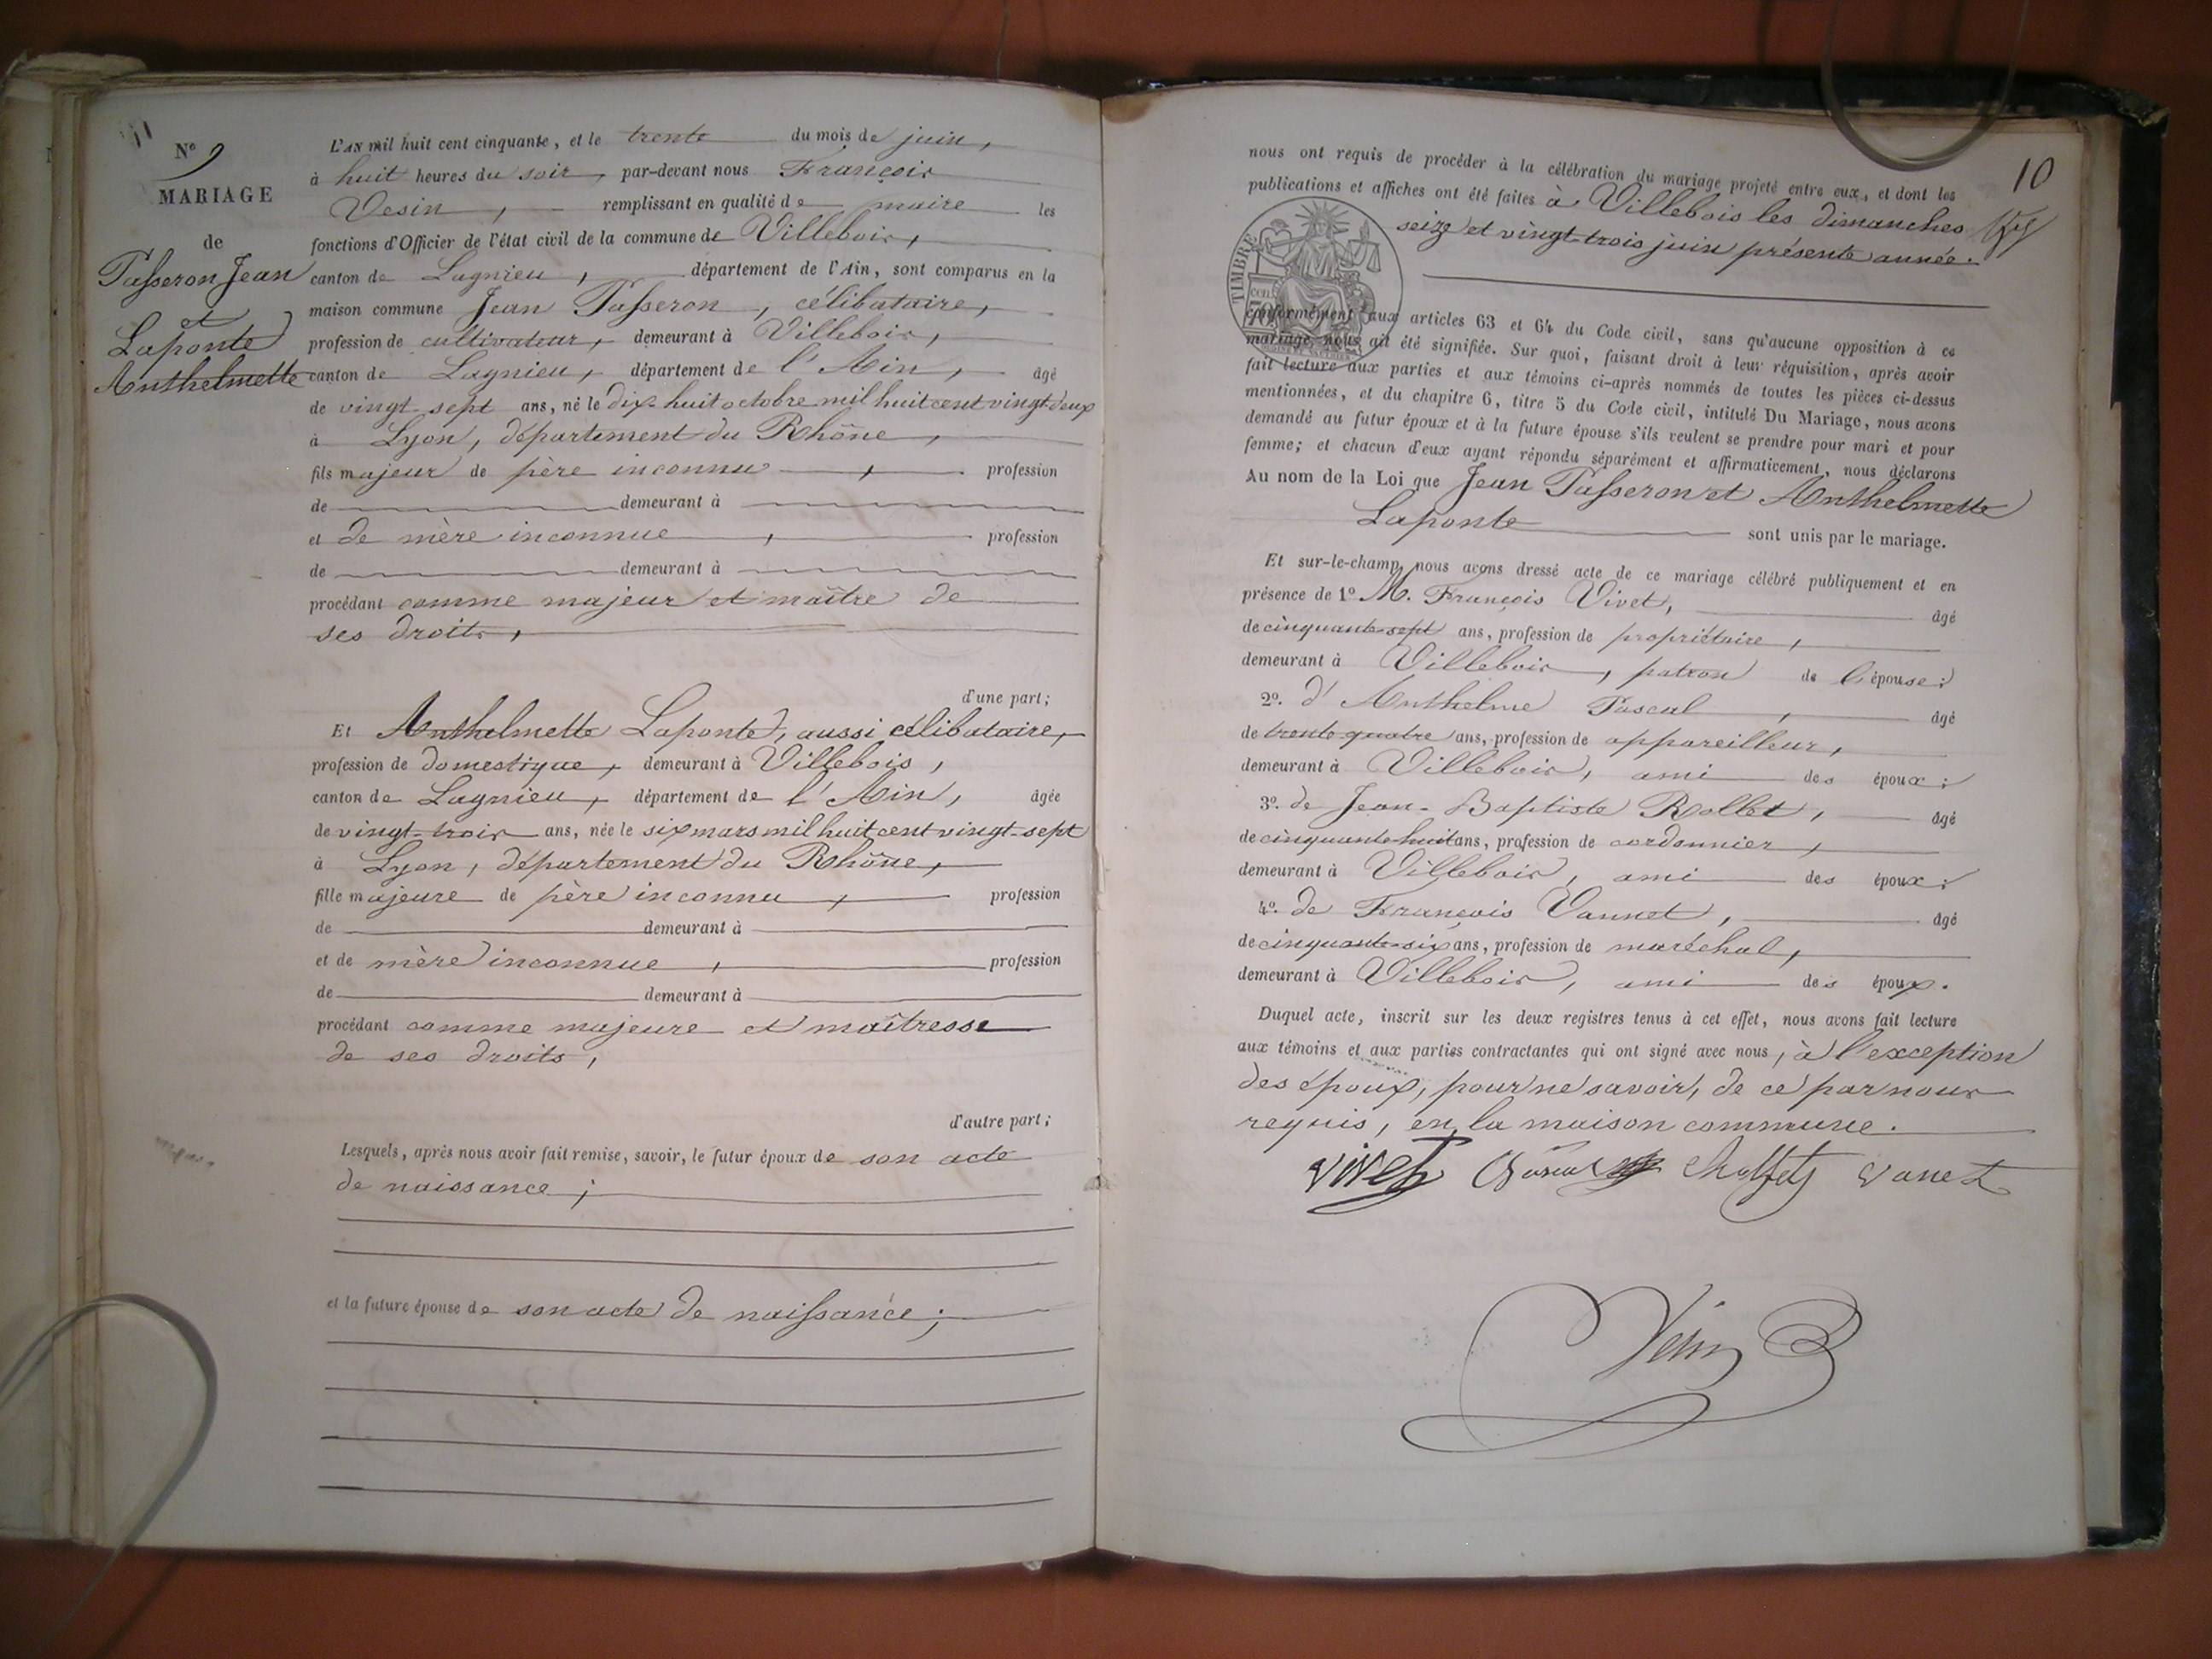 N° 9
MARIAGE
de
Passeron Jean
et
Laponte
Anthelmette
L'AN mil huit cent cinquante, et le trente du mois de juin,
à huit heures du soir, par-devant nous François
Vesin, remplissant en qualité de maire les
fonctions d'Officier de l'état civil de la commune de Villebois,
canton de Lagnieu, département de l'Ain, sont comparus en la
maison commune Jean Passeron, célibataire,
profession de cultivateur, demeurant à Villebois,
canton de Lagnieu, département de l'Ain, âgé
de vingt-sept ans, né le dix-huit octobre mil huit cent vingt-deux
à Lyon, département du Rhône,
fils majeur de père inconnu, profession
de demeurant à
et de mère inconnue, profession
de demeurant à
procédant comme majeur et maître de
ses droits,
d'une part;
Et Anthelmette Laponte, aussi célibataire,
profession de domestique, demeurant à Villebois,
canton de Lagnieu, département de l'Ain, âgée
de vingt-trois ans, née le six mars mil huit cent vingt-sept
à Lyon, département du Rhône,
fille majeure de père inconnu, profession
de demeurant à
et de mère inconnue, profession
de demeurant à
procédant comme majeure et maîtresse
de ses droits,
d'autre part;
Lesquels, après nous avoir fait remise, savoir, le futur époux de son acte
de naissance;
et la future épouse de son acte de naissance;
10
nous ont requis de procéder à la célébration du mariage projeté entre eux, et dont les
publications et affiches ont été faites à Villebois les dimanches
seize et vingt-trois juin présente année.
TIMBRE
conformément aux articles 63 et 64 du Code civil, sans qu'aucune opposition à ce
mariage nous ait été signifiée. Sur quoi, faisant droit à leur réquisition, après avoir
fait lecture aux parties et aux témoins ci-après nommés de toutes les pièces ci-dessus
mentionnées, et du chapitre 6, titre 5 du Code civil, intitulé Du Mariage, nous avons
demandé au futur époux et à la future épouse s'ils veulent se prendre pour mari et pour
femme; et chacun d'eux ayant répondu séparément et affirmativement, nous déclarons
Au nom de la Loi que Jean Passeron et Anthelmette
Laponte sont unis par le mariage.
Et sur-le-champ nous avons dressé acte de ce mariage célébré publiquement et en
présence de 1° M. François Vivet, âgé
de cinquante-sept ans, profession de propriétaire,
demeurant à Villebois, patron de l'épouse;
2° d'Anthelme Pascal, âgé
de trente-quatre ans, profession de appareilleur,
demeurant à Villebois, ami des époux;
3° de Jean-Baptiste Rollet, âgé
de cinquante-huit ans, profession de cordonnier,
demeurant à Villebois, ami des époux;
4° de François Vannet, âgé
de cinquante-six ans, profession de maréchal,
demeurant à Villebois, ami des époux.
Duquel acte, inscrit sur les deux registres tenus à cet effet, nous avons fait lecture
aux témoins et aux parties contractantes qui ont signé avec nous, à l'exception
des époux, pour ne savoir, de ce par nous
requis, en la maison commune.
vivet vanet
Vesin